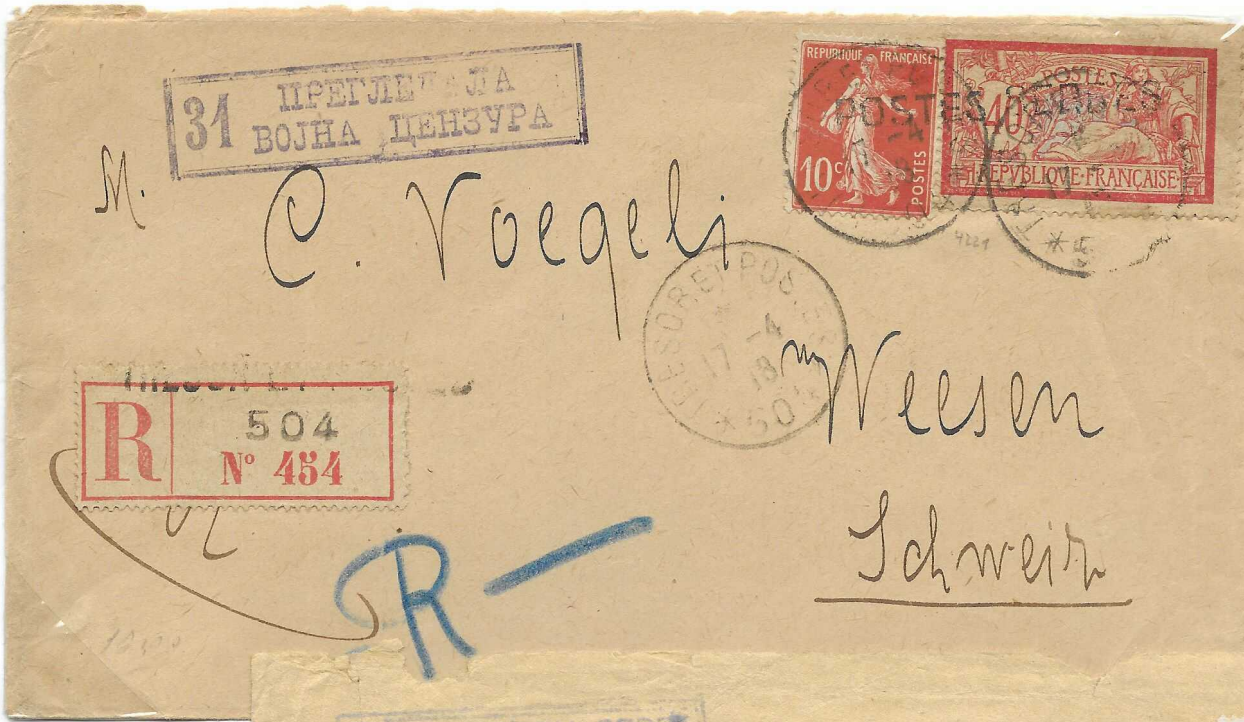 31 ПРЕГЛЕДАЛА
ВОЈНА ЦЕНЗУРА
REPUBLIQUE FRANÇAISE
10c
POSTES
POSTES
40c
REPUBLIQUE·FRANÇAISE
M. C. Voegeli
TRESOR ET POSTES
17 -4
18
* 504 *
Weesen
Schweiz
R
504
N° 454
R —
4221